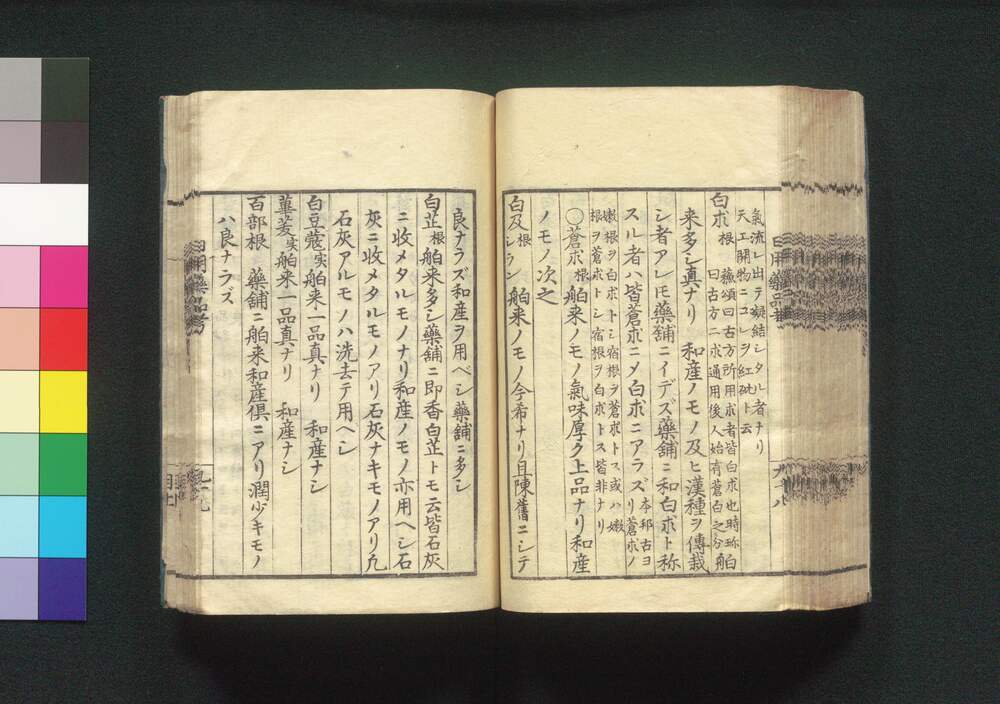 氣流レ出テ凝結シタル者ナリ
天工開物ニコレヲ紅砒ト云
白朮根 蘓頌曰古方所用朮者皆白朮也時珍
曰古方二朮通用後人始有蒼白之分 舶
来多シ真ナリ 和産ノモノ及ヒ漢種ヲ傳栽
シ者アレ𪜈藥舗ニイデズ藥舗ニ和白朮ト称
スル者ハ皆蒼朮ニメ白朮ニアラズ 本邦古ヨ
リ蒼朮ノ
嫩根ヲ白朮トシ宿根ヲ蒼朮トス或ハ嫩
根ヲ蒼朮トシ宿根ヲ白朮トス皆非ナリ
〇蒼朮根 舶来ノモノ氣味厚ク上品ナリ和産
ノモノ次之
白及根 シラン 舶来ノモノ今希ナリ且陳舊ニシテ
良ナラズ和産ヲ用ベシ藥舗ニ多シ
白芷根 舶来多シ藥舗ニ即香白芷トモ云皆石灰
ニ收メタルモノナリ和産ノモノ亦用ヘシ石
灰ニ收メタルモノアリ石灰ナキモノアリ凢
石灰アルモノハ洗去テ用ヘシ
白豆蔻実 舶来一品真ナリ 和産ナシ
蓽茇実 舶来一品真ナリ 和産ナシ
百部根 藥舗ニ舶来和産倶ニアリ潤少キモノ
ハ良ナラズ
日用藥品考